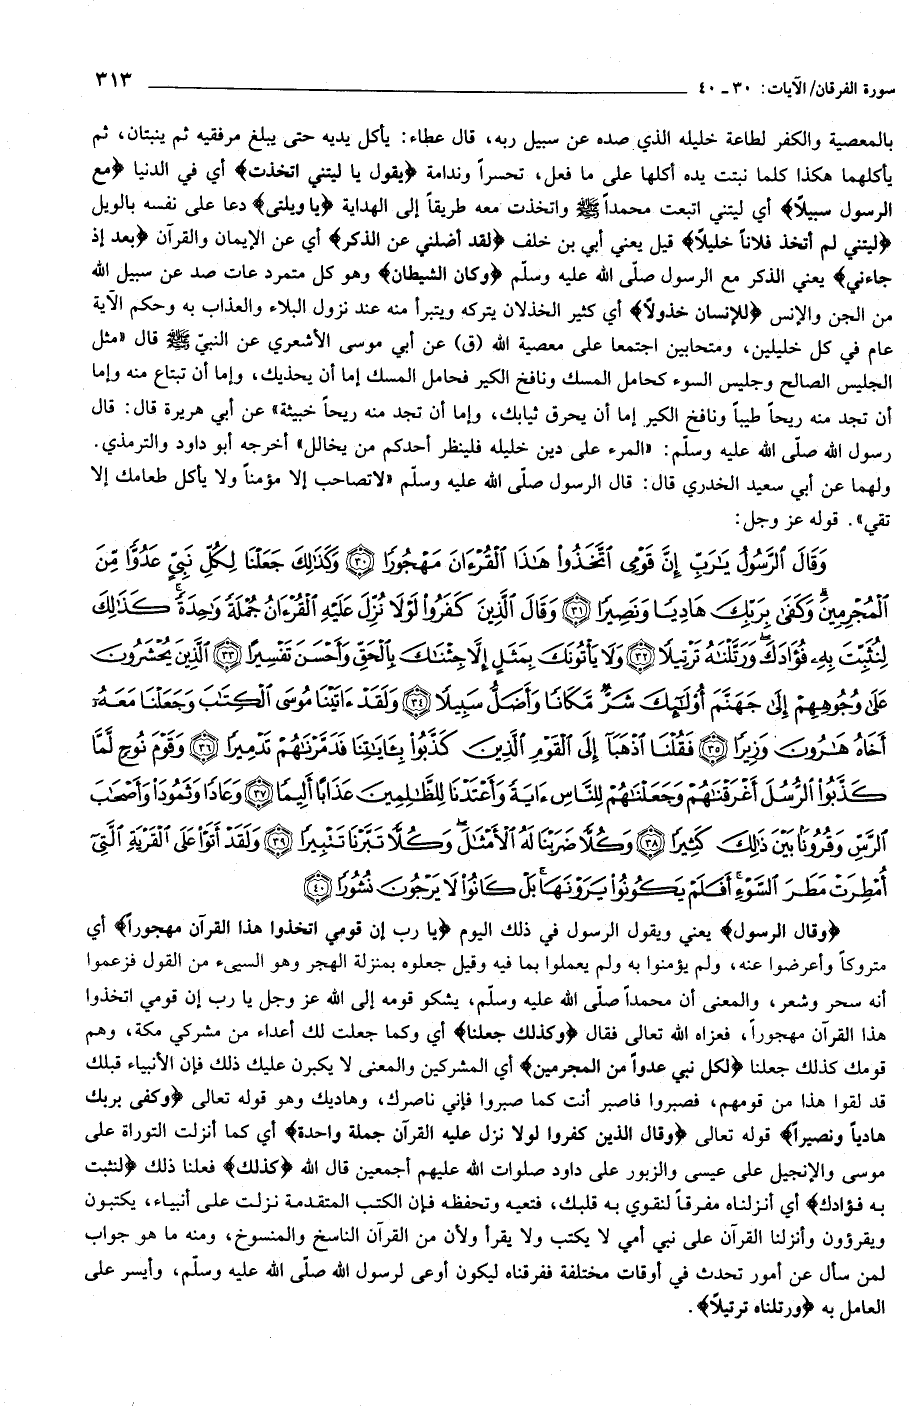 سورة الفرقان/ الآيات: ٣٠ ـ ٤٠ ٣١٣
بالمعصية والكفر لطاعة خليله الذي صده عن سبيل ربه، قال عطاء: يأكل يديه حتى يبلغ مرفقيه ثم ينبتان، ثم
يأكلهما هكذا كلما نبتت يده أكلها على ما فعل، تحسراً وندامة ﴿يقول يا ليتني اتخذت﴾ أي في الدنيا ﴿مع
الرسول سبيلاً﴾ أي ليتني اتبعت محمداً ﷺ واتخذت معه طريقاً إلى الهداية ﴿يا ويلتى﴾ دعا على نفسه بالويل
﴿ليتني لم أتخذ فلاناً خليلاً﴾ قيل يعني أبي بن خلف ﴿لقد أضلني عن الذكر﴾ أي عن الإيمان والقرآن ﴿بعد إذ
جاءني﴾ يعني الذكر مع الرسول صلّى الله عليه وسلّم ﴿وكان الشيطان﴾ وهو كل متمرد عات صد عن سبيل الله
من الجن والإنس ﴿للإنسان خذولاً﴾ أي كثير الخذلان يتركه ويتبرأ منه عند نزول البلاء والعذاب به وحكم الآية
عام في كل خليلين، ومتحابين اجتمعا على معصية الله (ق) عن أبي موسى الأشعري عن النبيّ ﷺ قال «مثل
الجليس الصالح وجليس السوء كحامل المسك ونافخ الكير فحامل المسك إما أن يحذيك، وإما أن تبتاع منه وإما
أن تجد منه ريحاً طيباً ونافخ الكير إما أن يحرق ثيابك، وإما أن تجد منه ريحاً خبيثة» عن أبي هريرة قال: قال
رسول الله صلّى الله عليه وسلّم: «المرء على دين خليله فلينظر أحدكم من يخالل» أخرجه أبو داود والترمذي.
ولهما عن أبي سعيد الخدري قال: قال الرسول صلّى الله عليه وسلّم «لاتصاحب إلا مؤمناً ولا يأكل طعامك إلا
تقي». قوله عز وجل:
وَقَالَ ٱلرَّسُولُ يَـٰرَبِّ إِنَّ قَوْمِى ٱتَّخَذُوا۟ هَـٰذَا ٱلْقُرْءَانَ مَهْجُورًا ﴿٣٠﴾ وَكَذَٰلِكَ جَعَلْنَا لِكُلِّ نَبِىٍّ عَدُوًّا مِّنَ
ٱلْمُجْرِمِينَ ۗ وَكَفَىٰ بِرَبِّكَ هَادِيًا وَنَصِيرًا ﴿٣١﴾ وَقَالَ ٱلَّذِينَ كَفَرُوا۟ لَوْلَا نُزِّلَ عَلَيْهِ ٱلْقُرْءَانُ جُمْلَةً وَٰحِدَةً ۚ كَذَٰلِكَ
لِنُثَبِّتَ بِهِۦ فُؤَادَكَ ۖ وَرَتَّلْنَـٰهُ تَرْتِيلًا ﴿٣٢﴾ وَلَا يَأْتُونَكَ بِمَثَلٍ إِلَّا جِئْنَـٰكَ بِٱلْحَقِّ وَأَحْسَنَ تَفْسِيرًا ﴿٣٣﴾ ٱلَّذِينَ يُحْشَرُونَ
عَلَىٰ وُجُوهِهِمْ إِلَىٰ جَهَنَّمَ أُو۟لَـٰٓئِكَ شَرٌّ مَّكَانًا وَأَضَلُّ سَبِيلًا ﴿٣٤﴾ وَلَقَدْ ءَاتَيْنَا مُوسَى ٱلْكِتَـٰبَ وَجَعَلْنَا مَعَهُۥٓ
أَخَاهُ هَـٰرُونَ وَزِيرًا ﴿٣٥﴾ فَقُلْنَا ٱذْهَبَآ إِلَى ٱلْقَوْمِ ٱلَّذِينَ كَذَّبُوا۟ بِـَٔايَـٰتِنَا فَدَمَّرْنَـٰهُمْ تَدْمِيرًا ﴿٣٦﴾ وَقَوْمَ نُوحٍ لَّمَّا
كَذَّبُوا۟ ٱلرُّسُلَ أَغْرَقْنَـٰهُمْ وَجَعَلْنَـٰهُمْ لِلنَّاسِ ءَايَةً وَأَعْتَدْنَا لِلظَّـٰلِمِينَ عَذَابًا أَلِيمًا ﴿٣٧﴾ وَعَادًا وَثَمُودَا۟ وَأَصْحَـٰبَ
ٱلرَّسِّ وَقُرُونًۢا بَيْنَ ذَٰلِكَ كَثِيرًا ﴿٣٨﴾ وَكُلًّا ضَرَبْنَا لَهُ ٱلْأَمْثَـٰلَ ۖ وَكُلًّا تَبَّرْنَا تَتْبِيرًا ﴿٣٩﴾ وَلَقَدْ أَتَوْا۟ عَلَى ٱلْقَرْيَةِ ٱلَّتِىٓ
أُمْطِرَتْ مَطَرَ ٱلسَّوْءِ ۚ أَفَلَمْ يَكُونُوا۟ يَرَوْنَهَا ۚ بَلْ كَانُوا۟ لَا يَرْجُونَ نُشُورًا ﴿٤٠﴾
﴿وقال الرسول﴾ يعني ويقول الرسول في ذلك اليوم ﴿يا رب إن قومي اتخذوا هذا القرآن مهجوراً﴾ أي
متروكاً وأعرضوا عنه، ولم يؤمنوا به ولم يعملوا بما فيه وقيل جعلوه بمنزلة الهجر وهو السيىء من القول فزعموا
أنه سحر وشعر، والمعنى أن محمداً صلّى الله عليه وسلّم، يشكو قومه إلى الله عز وجل يا رب إن قومي اتخذوا
هذا القرآن مهجوراً، فعزاه الله تعالى فقال ﴿وكذلك جعلنا﴾ أي وكما جعلت لك أعداء من مشركي مكة، وهم
قومك كذلك جعلنا ﴿لكل نبي عدواً من المجرمين﴾ أي المشركين والمعنى لا يكبرن عليك ذلك فإن الأنبياء قبلك
قد لقوا هذا من قومهم، فصبروا فاصبر أنت كما صبروا فإني ناصرك، وهاديك وهو قوله تعالى ﴿وكفى بربك
هادياً ونصيراً﴾ قوله تعالى ﴿وقال الذين كفروا لولا نزل عليه القرآن جملة واحدة﴾ أي كما أنزلت التوراة على
موسى والإنجيل على عيسى والزبور على داود صلوات الله عليهم أجمعين قال الله ﴿كذلك﴾ فعلنا ذلك ﴿لنثبت
به فؤادك﴾ أي أنزلناه مفرقاً لنقوي به قلبك، فتعيه وتحفظه فإن الكتب المتقدمة نزلت على أنبياء، يكتبون
ويقرؤون وأنزلنا القرآن على نبي أمي لا يكتب ولا يقرأ ولأن من القرآن الناسخ والمنسوخ، ومنه ما هو جواب
لمن سأل عن أمور تحدث في أوقات مختلفة ففرقناه ليكون أوعى لرسول الله صلّى الله عليه وسلّم، وأيسر على
العامل به ﴿ورتلناه ترتيلاً﴾.